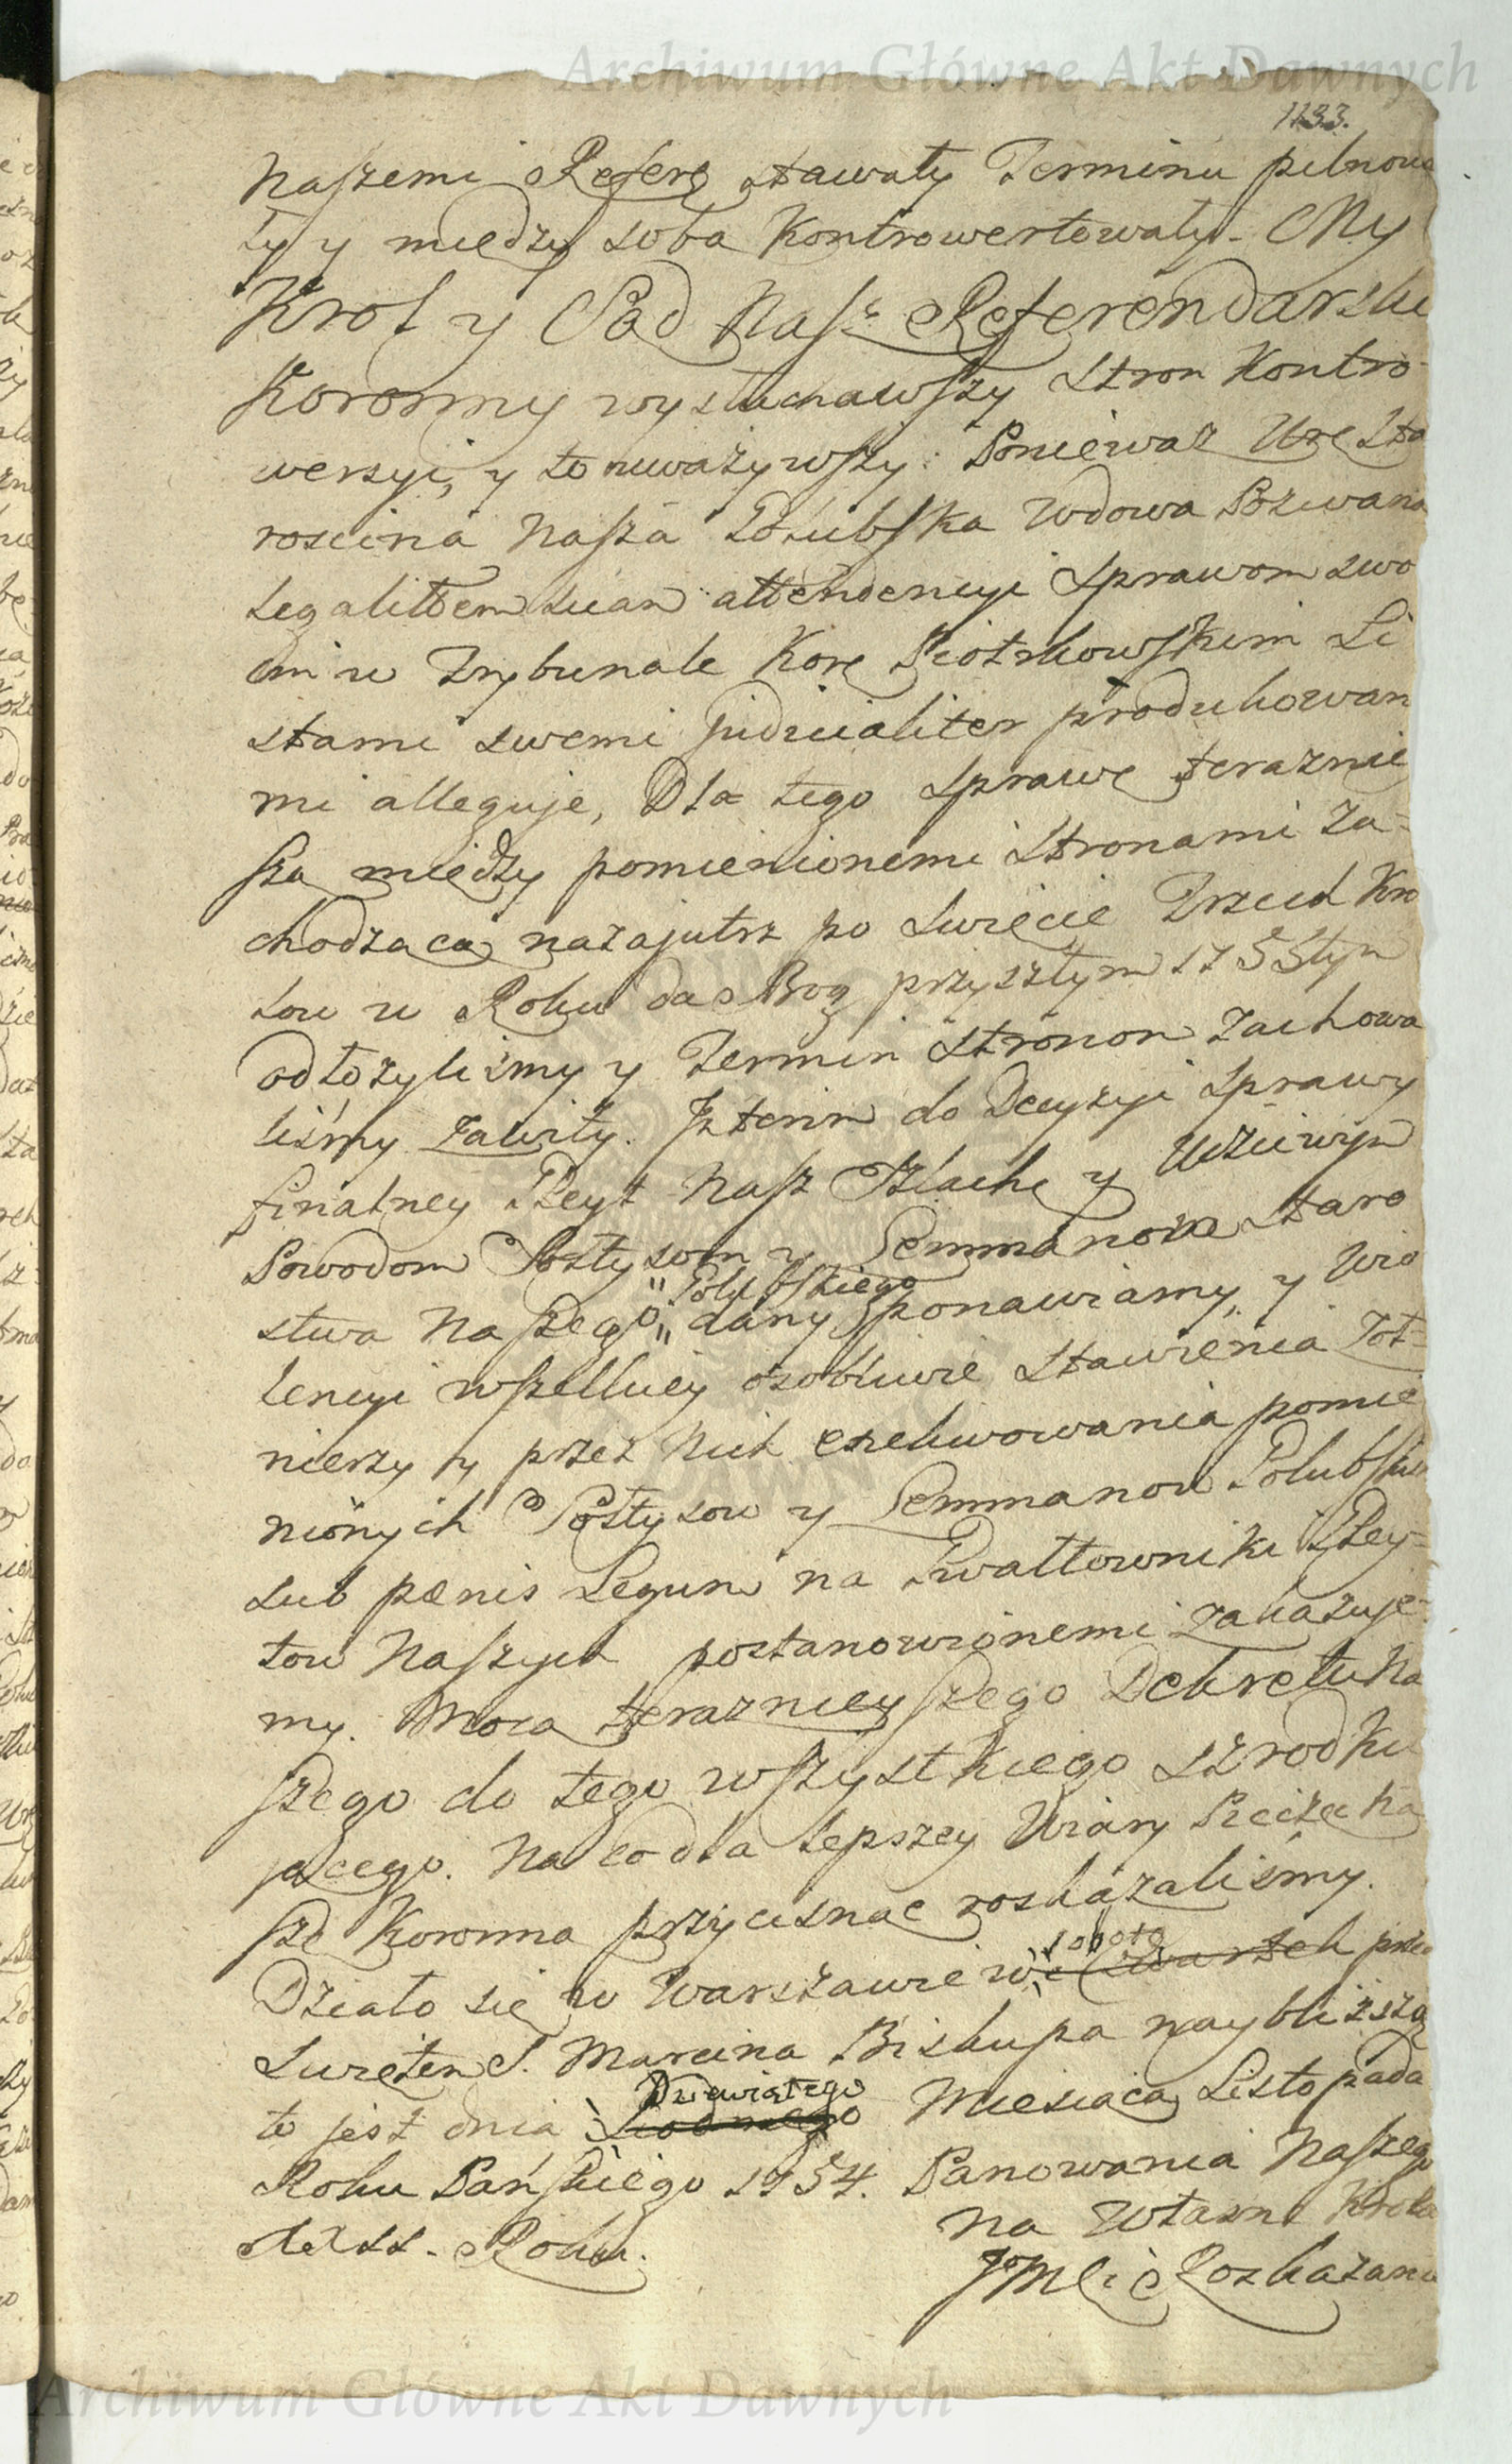 Archiwum Główne Akt Dawnych
1133.
Naszemi Refere stawały Terminu pilnowa
ły y między sobą Kontrowertowały. My
Krol y Sąd Nasz Referendarski
Koronny wysłuchawszy stron Kontro-
wersyi, y to uważywszy: Ponieważ Ure Sta
roscina Nasza Golubska Wdowa Pozwana
legalitatem suam attendencyi sprawom swo
im w Trybunale Kore Piotrkowskim Li
stami swemi judicialiter produkowan
mi alleguje, Dla tego sprawę teraznie
szą między pomienionemi Stronami za-
chodzącą nazajutrz po Swięcie Trzech Kro
low w Roku da Bog przyszłym 1755tym
odłożyliśmy y Termin Stronom zachowa
liśmy zawity. Interim do Decyzyi sprawy
finalney Gleyt Nasz Szlache y Uczciwym
Powodom Sołtysom y Lemmanom Staro
stwa Naszego Golubskiego dany ponawiamy, y Wio
lencyi wszelkiey osobliwie stawienia Żoł-
nierzy y przez nich exekwowania pomie
nionych Sołtysow y Lemmanow Golubskich
sub pœnis Legum na Gwałtowniki Gley-
tow Naszych postanowionemi zakazuje-
my. Mocą teraznieyszego Dekretu Na
szego do tego wszystkiego szrodku
jącego. Na co dla lepszey Wiary Pieczęć Na
szą Koronną przycisnąć roskazaliśmy.
Działo się w Warszawie w sobotę we Czwartek przed
Swiętem S. Marcina Biskupa naybliższą
to jest dnia Dziewiątego Siodmego Miesiąca Listopada
Roku Pańskiego 1754. Panowania Naszego
XXII. Roku.
Na Własne Krola
JMCi Rozkazanie
Archiwum Główne Akt Dawnych